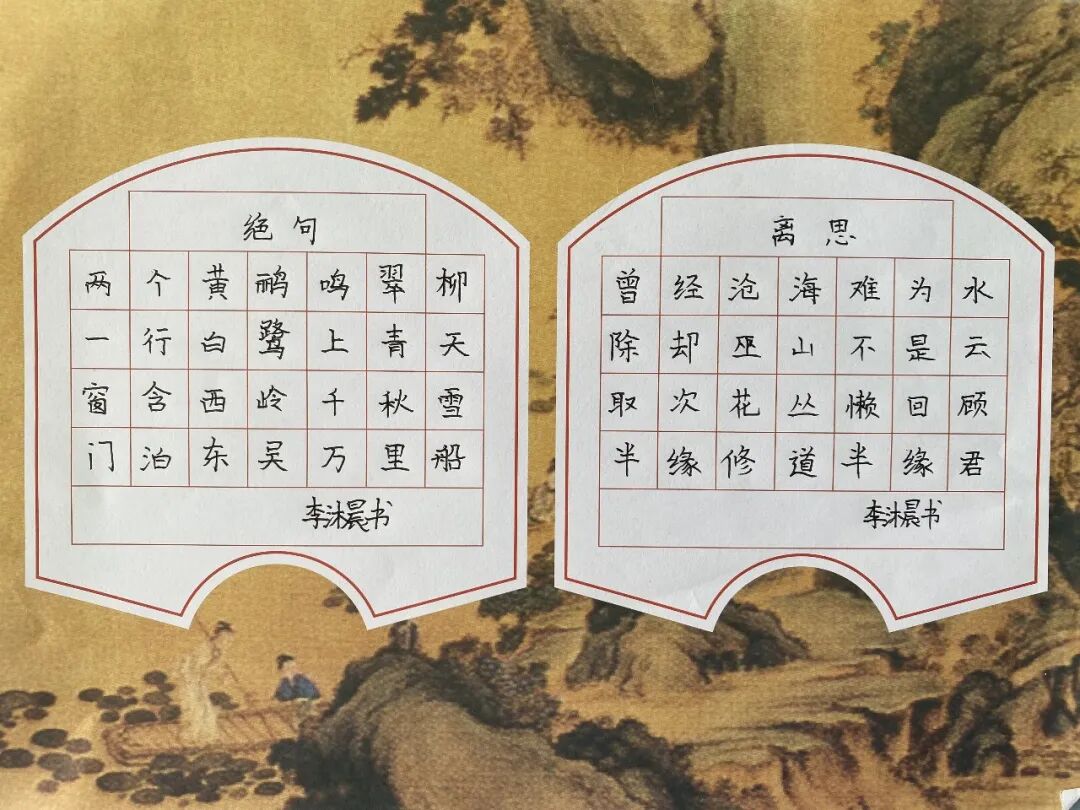 绝句
两个黄鹂鸣翠柳
一行白鹭上青天
窗含西岭千秋雪
门泊东吴万里船
李沐晨书
离思
曾经沧海难为水
除却巫山不是云
取次花丛懒回顾
半缘修道半缘君
李沐晨书